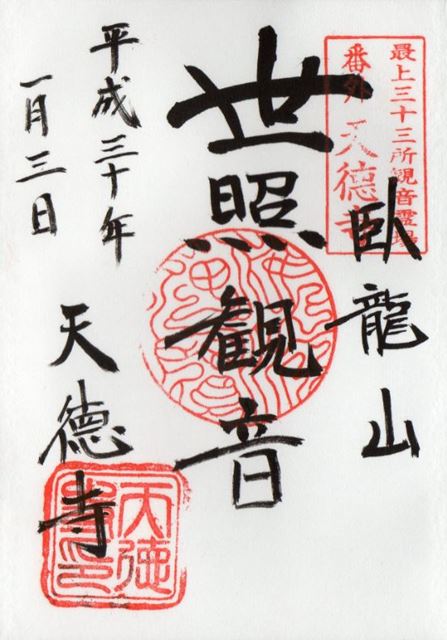 最上三十三所観音霊場
番外 天徳寺
臥龍山
世照観音
平成三十年
一月三日
天徳寺
天徳
寺印